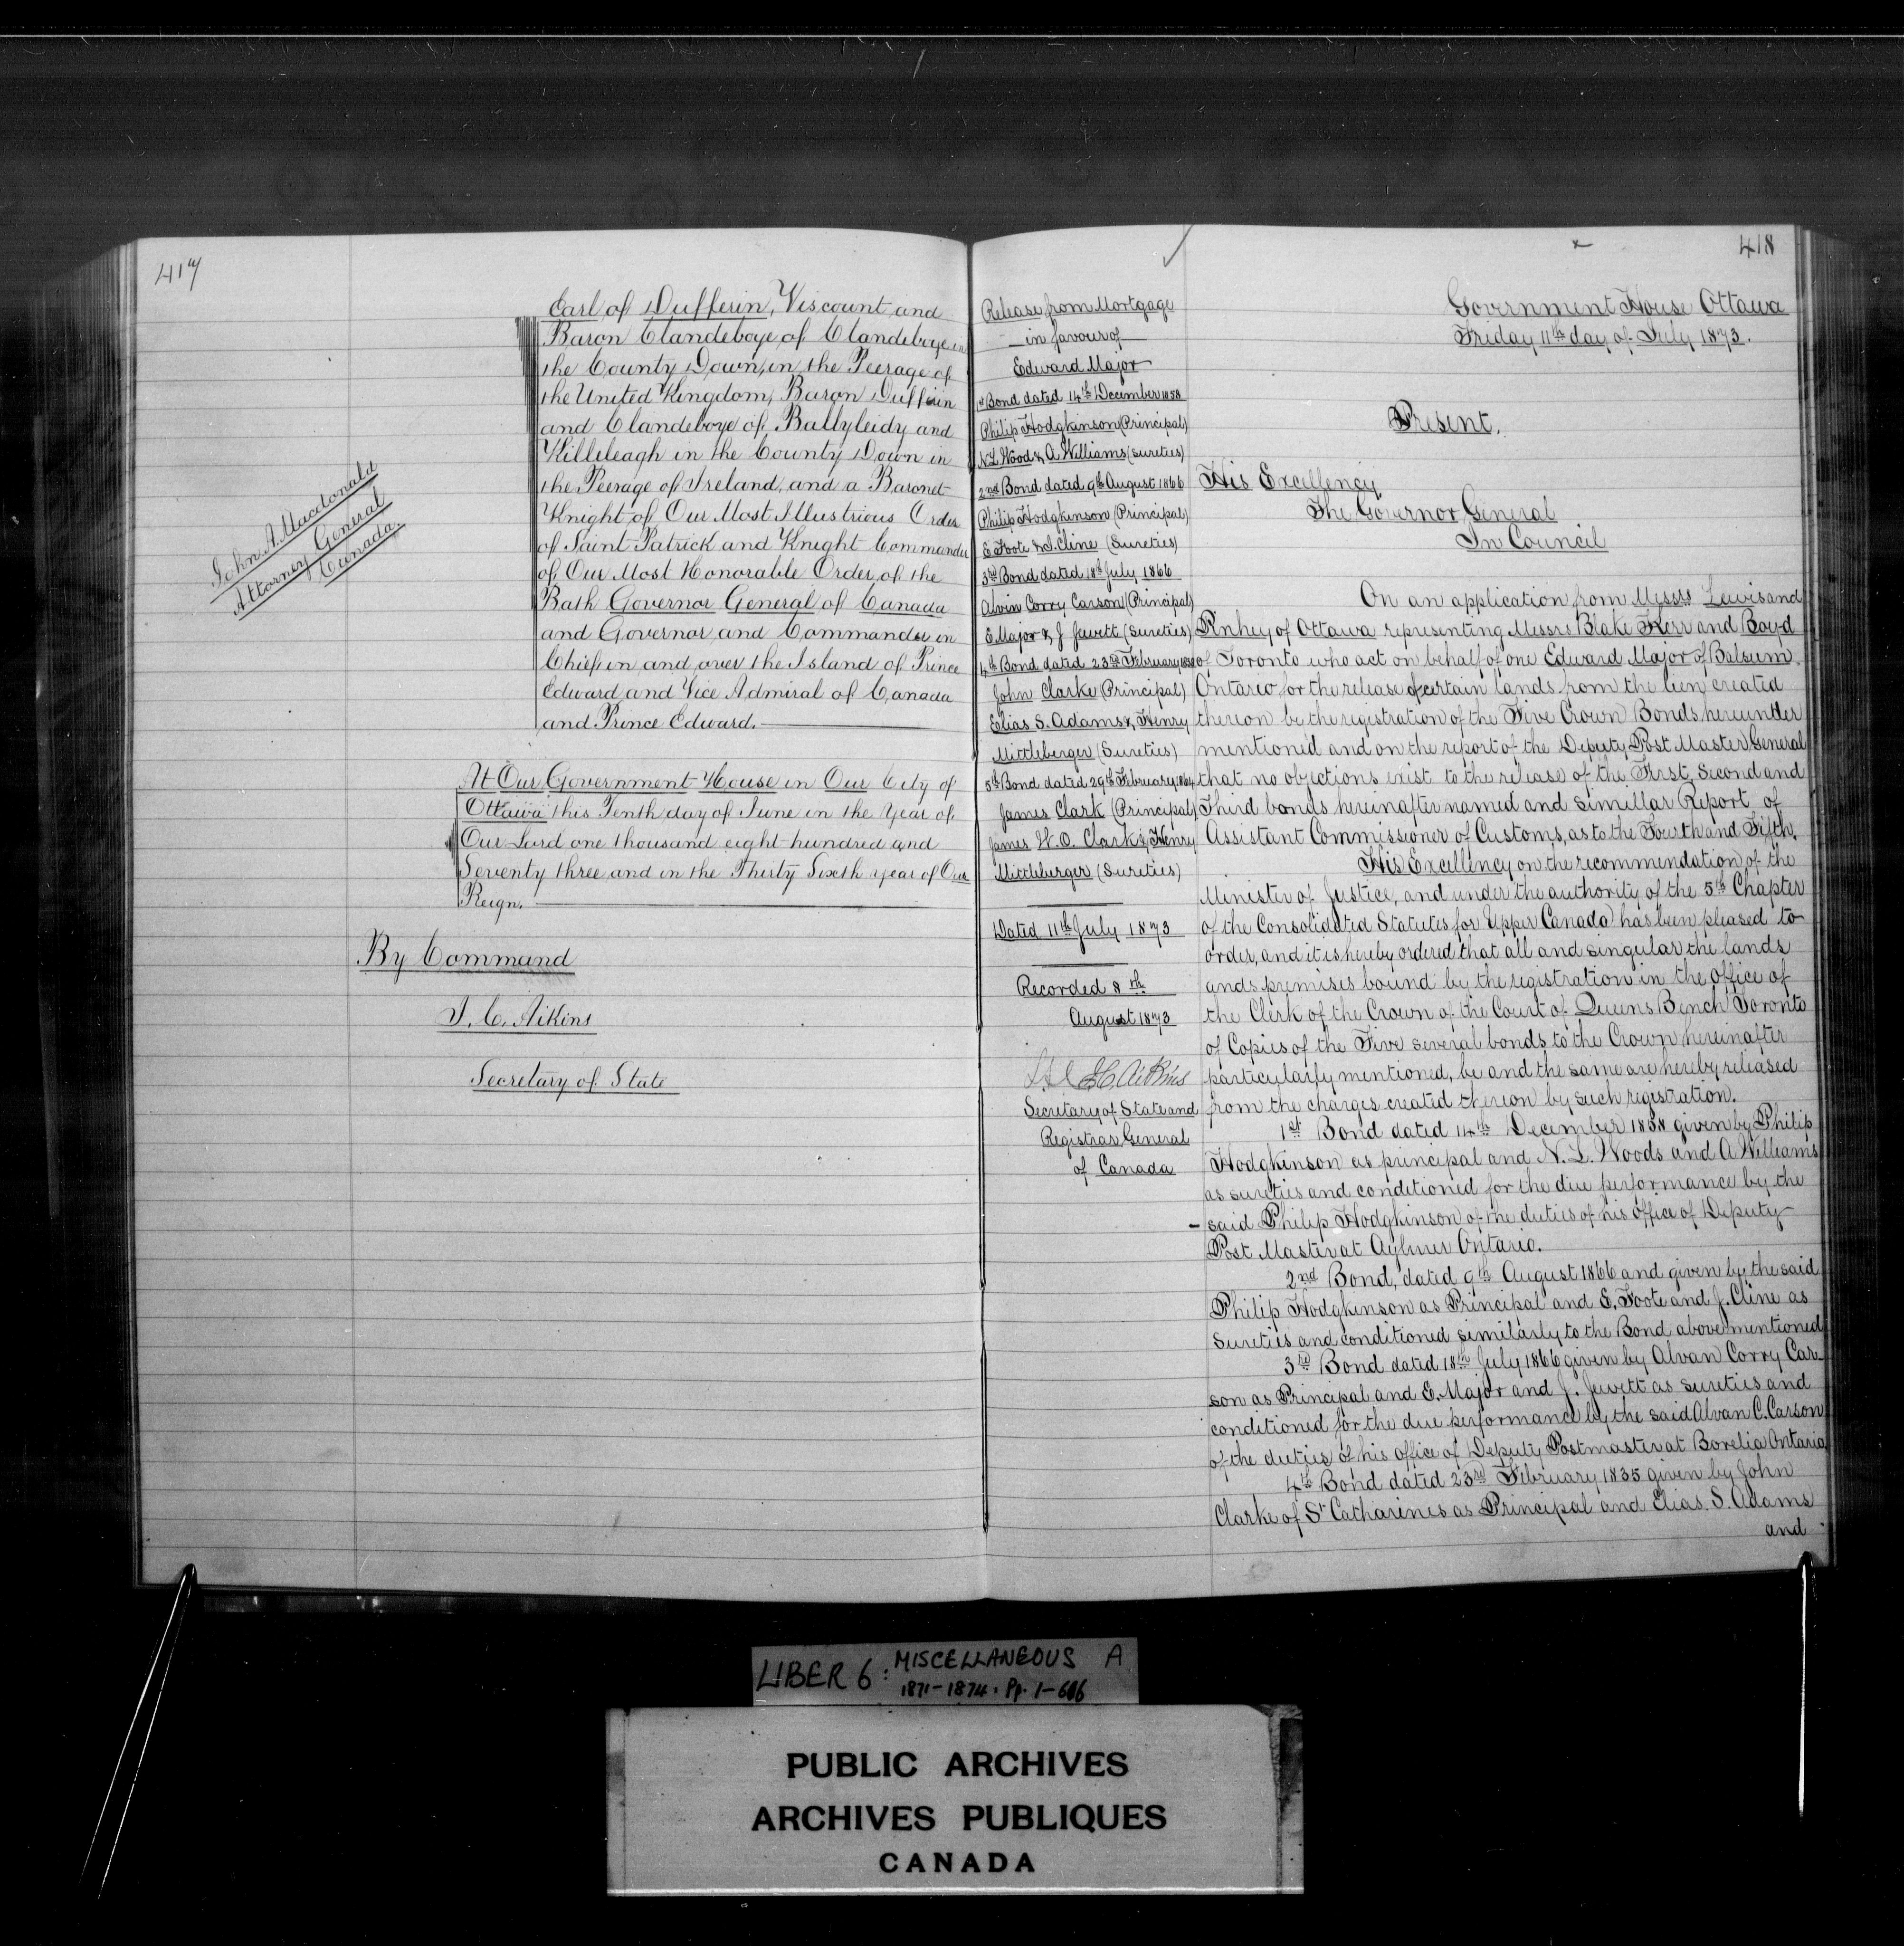 417
Earl of Dufferin, Viscount and
Baron Clandeboye of Clandeboye in
the County Down, in the Peerage of
the United Kingdom, Baron Dufferin
and Clandeboye of Ballyleidy and
Killeleagh in the County Down in
the Peerage of Ireland, and a Baronet
Knight of Our Most Illustrious Order
of Saint Patrick and Knight Commander
of Our Most Honorable Order of the
Bath Governor General of Canada
and Governor and Commander in
Chief in and over the Island of Prince
Edward and Vice Admiral of Canada
and Prince Edward.
John A. Macdonald
Attorney General
Canada.
At Our Government House in Our City of
Ottawa this Tenth day of June in the Year of
Our Lord one thousand eight hundred and
Seventy three and in the Thirty Sixth year of Our
Reign.
By Command
J. C. Aikins
Secretary of State
418
Release from Mortgage
in favour of
Edward Major
1st Bond dated 14th December 1858
Philip Hodgkinson (Principal)
N L Wood & A Williams (sureties)
2nd Bond dated 9th August 1866
Philip Hodgkinson (Principal)
E Foote & J. Cline (Sureties)
3rd Bond dated 18th July 1866
Alvin Corry Carson (Principal)
E Major & J Jewett (sureties)
4th Bond dated 23rd February
John Clarke (Principal)
Elias S. Adams & Henry
Mittleberger (Sureties)
5th Bond dated 29th February 1864
James Clark (Principal)
James W. O. Clark & Henry
Mittleburger (Sureties)
Dated 11th July 1873
Recorded 8th
August 1873
J C Aikins
Secretary of State and
Registrar General
of Canada
Government House Ottawa
Friday 11th day of July 1873.
Present.
His Excellency
The Governor General
In Council
On an application from Messrs Lewis and
Pinhey of Ottawa representing Messrs Blake Kerr and Boyd
of Toronto who act on behalf of one Edward Major of Balsum
Ontario for the release of certain lands from the lien created
thereon by the registration of the Five Crown Bonds hereunder
mentioned and on the report of the Deputy Post Master General
that no objections exist to the release of the First, Second and
Third bonds hereinafter named and simillar Report of
Assistant Commissioner of Customs, as to the Fourth and Fifth.
His Excellency on the recommendation of the
Minister of Justice, and under the authority of the 5th Chapter
of the Consolidated Statutes for Upper Canada has been pleased to
order, and it is hereby ordered that all and singular the lands
and premises bound by the registration in the office of
the Clerk of the Crown of the Court of Queens Bench Toronto
of Copies of the Five several bonds to the Crown hereinafter
particularly mentioned, be and the same are hereby released
from the charges created thereon by such registration.
1st Bond dated 14th December 1858 given by Philip
Hodgkinson as principal and N. L. Woods and A Williams
as sureties and conditioned for the due performance by the
said Philip Hodgkinson of the duties of his office of Deputy
Post Master at Aylmer Ontario.
2nd Bond, dated 9th August 1866 and given by the said
Philip Hodgkinson as Principal and E. Foote and J. Cline as
Sureties and conditioned similarly to the Bond above mentioned
3rd Bond dated 18th July 1866 given by Alvan Corry Car-
son as Principal and E. Major and J. Jewett as sureties and
conditioned for the due performance by the said Alvan C. Carson
of the duties of his office of Deputy Postmaster at Borelia Ontario
4th Bond dated 23rd February 1835 given by John
Clarke of St Catharines as Principal and Elias. S. Adams
and
LIBER 6: MISCELLANEOUS A
1871-1874: Pp. 1-606
PUBLIC ARCHIVES
ARCHIVES PUBLIQUES
CANADA